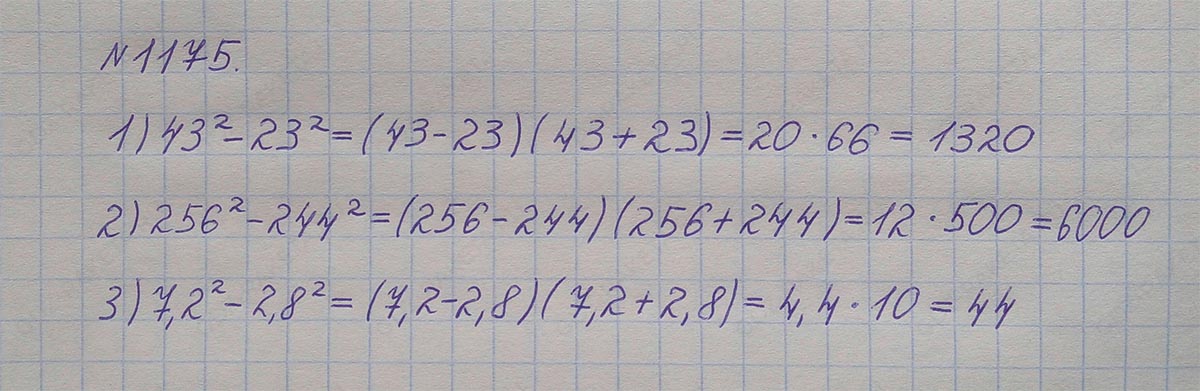 №1175.
1) 43² - 23² = (43 - 23)(43 + 23) = 20 · 66 = 1320
2) 256² - 244² = (256 - 244)(256 + 244) = 12 · 500 = 6000
3) 7,2² - 2,8² = (7,2 - 2,8)(7,2 + 2,8) = 4,4 · 10 = 44